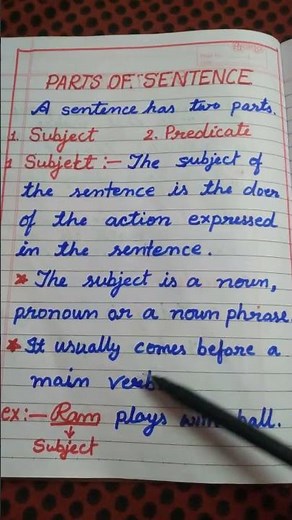 PARTS OF SENTENCE
A sentence has two parts.
1. Subject 2. Predicate
1 Subject :- The subject of
the sentence is the doer
of the action expressed
in the sentence.
* The subject is a noun,
pronoun or a noun phrase
* It usually comes before a
main verb
ex:- Ram plays with ball.
Subject